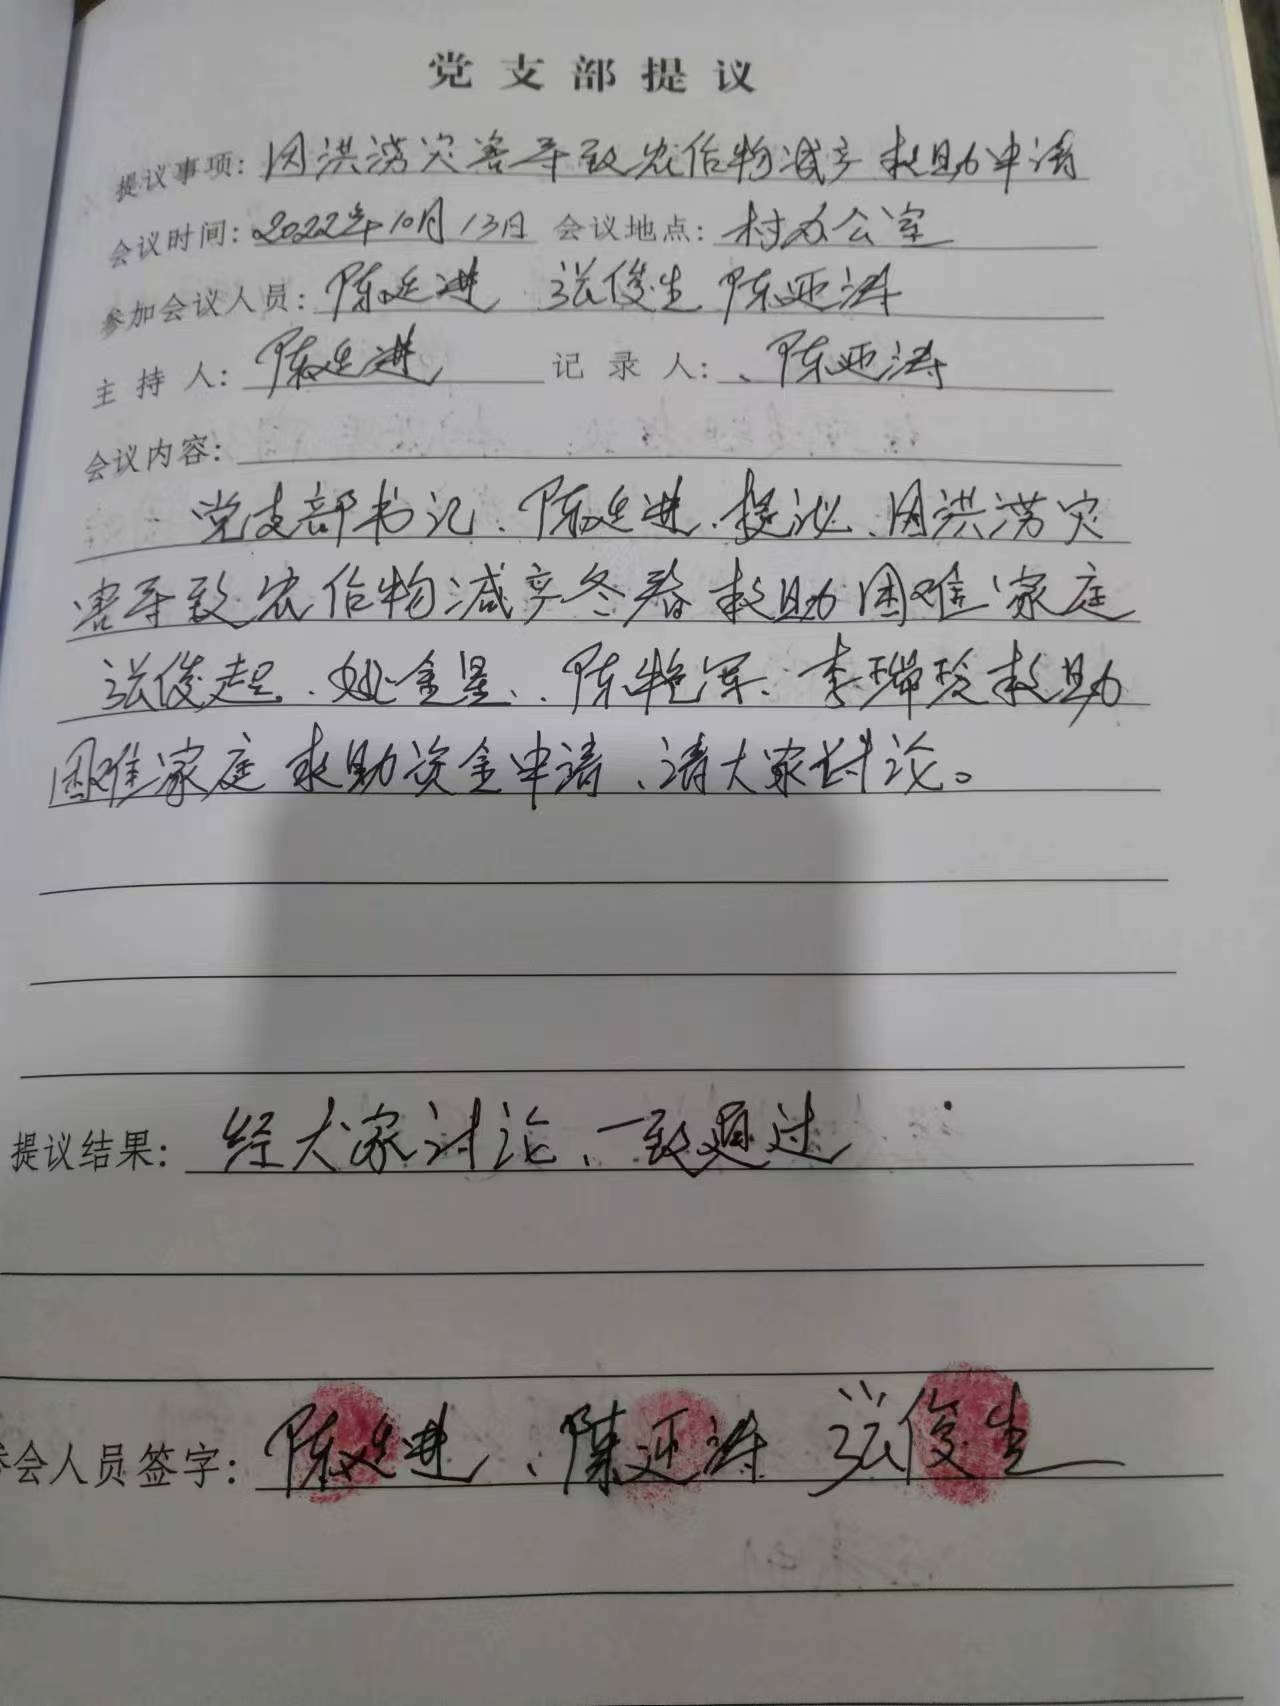 党支部提议
提议事项：因洪涝灾害导致农作物减产救助申请
会议时间：2022年10月13日 会议地点：村办公室
参加会议人员：陈廷进 张俊生 陈亚涛
主持人：陈廷进 记录人：、陈亚涛
会议内容：
党支部书记、陈廷进、提议、因洪涝灾
害导致农作物减产冬春救助困难家庭
张俊起、姚金星、陈艳军、李瑞玲救助
困难家庭救助资金申请、请大家讨论。
提议结果：经大家讨论、一致通过
参会人员签字：陈廷进、陈亚涛 张俊生